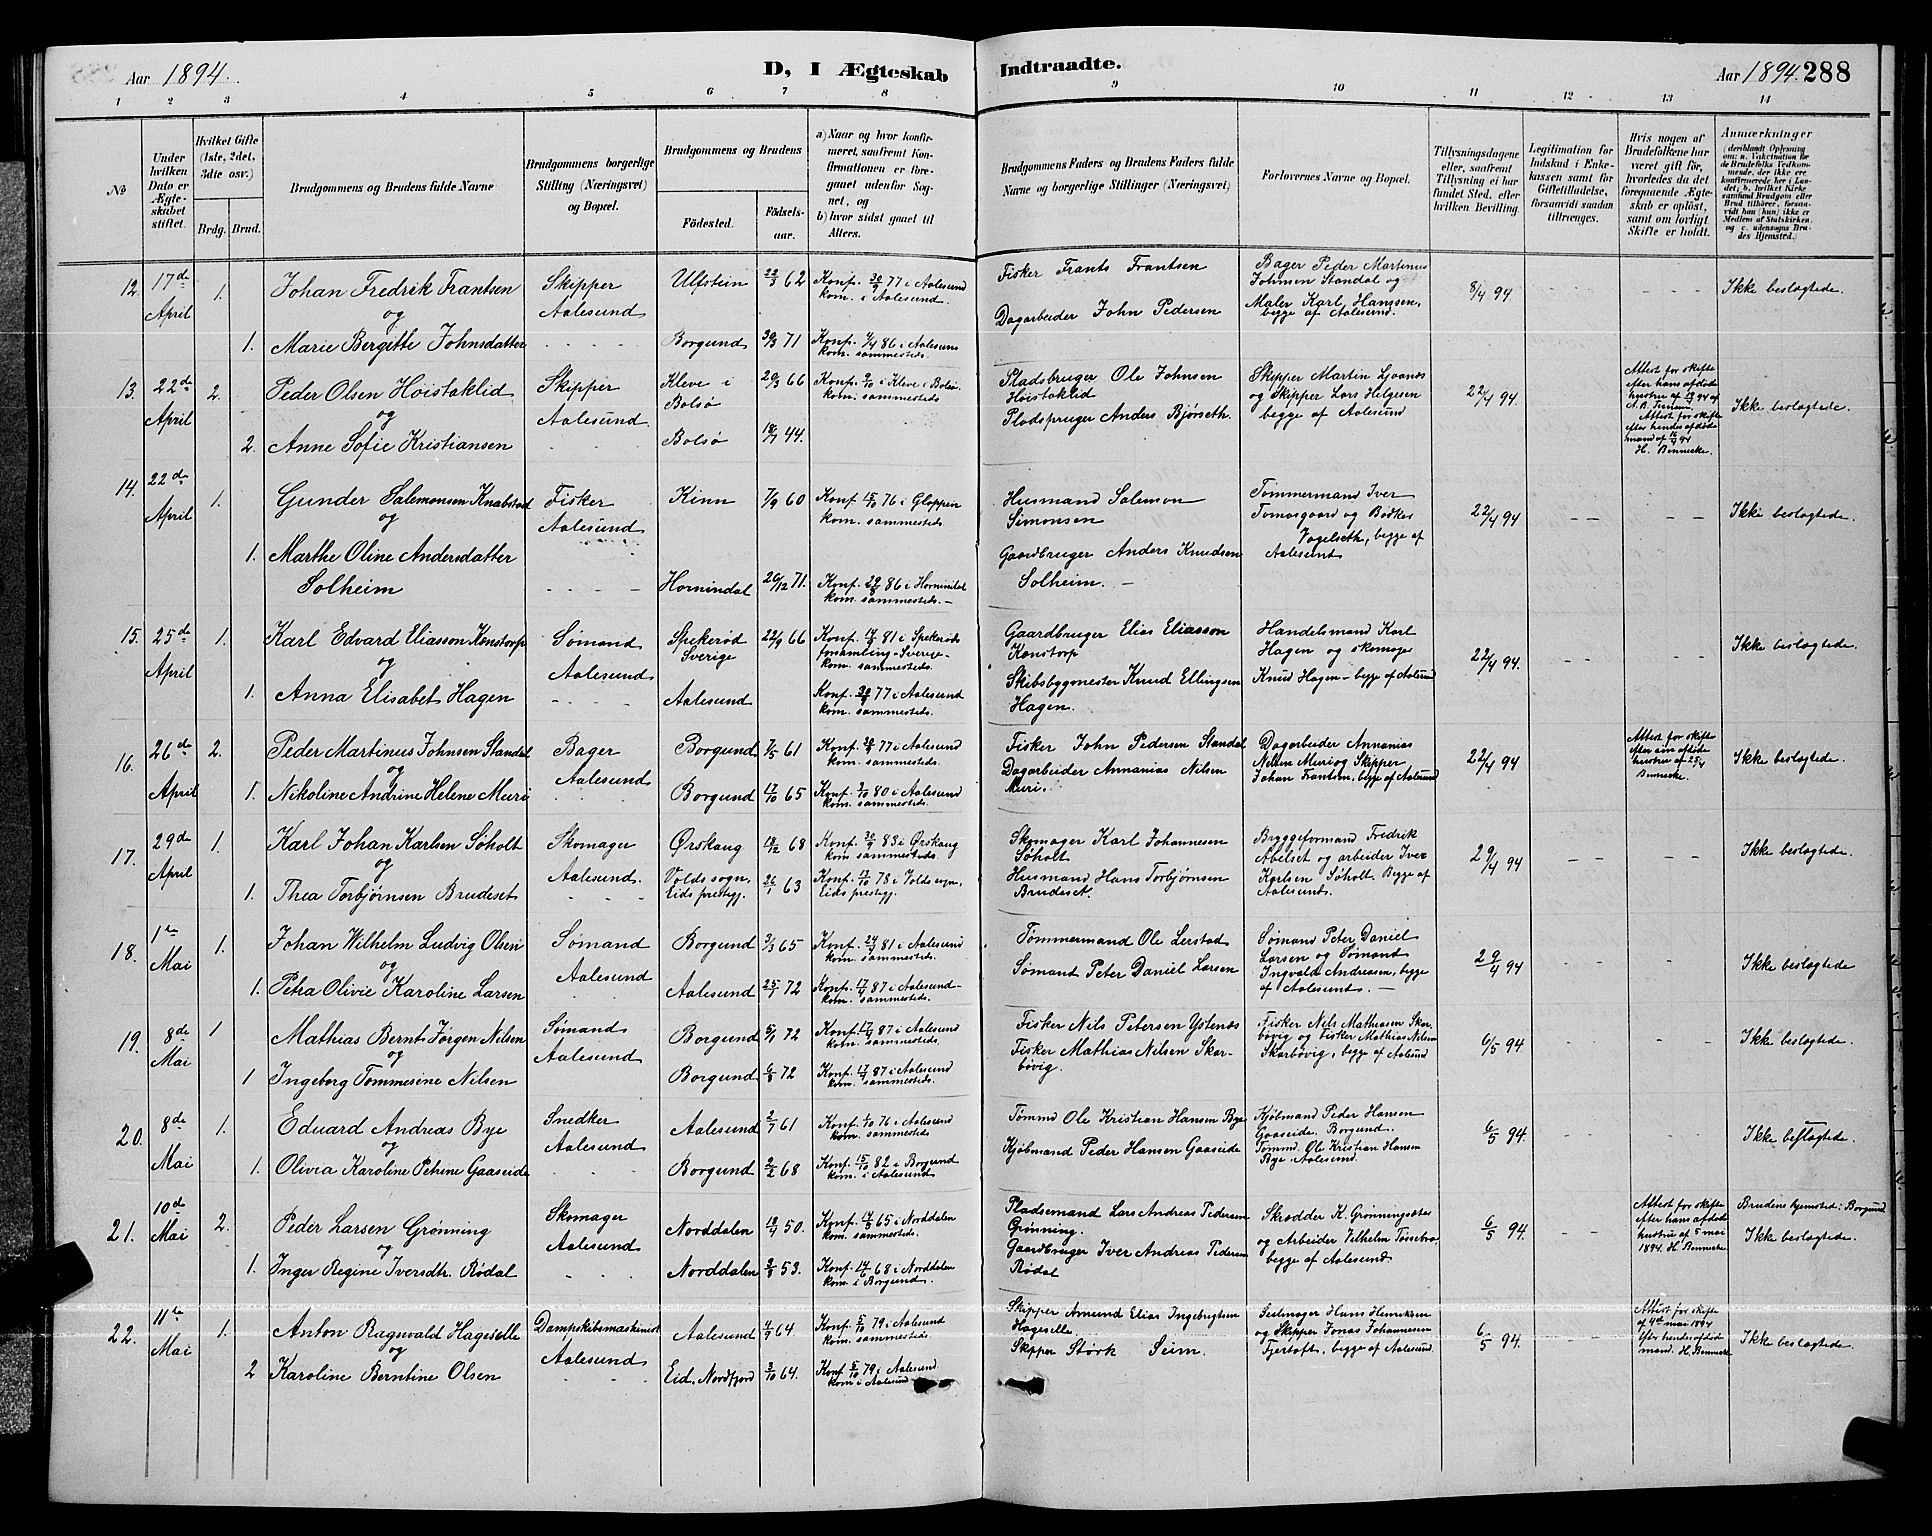 Aar 1894.
D, I Ægteskab Indtraadte.
Aar 1894. 288
1 2 3 4 5 6 7 8 9 10 11 12 13 14
No
Under hvilken Dato er Ægteskabet stiftet.
Hvilket Gifte (1ste, 2det, 3die osv.)
Brdg. Brud.
Brudgommens og Brudens fulde Navne
Brudgommens borgerlige Stilling (Næringsvei) og Bopæl.
Brudgommens og Brudens
Fødested. Fødselsaar.
a) Naar og hvor konfirmeret, saafremt Konfirmationen er foregaaet udenfor Sognet, og
b) hvor sidst gaaet til Alters.
Brudgommens Faders og Brudens Faders fulde Navne og borgerlige Stillinger (Næringsvei)
Forlovernes Navne og Bopæl.
Tillysningsdagene eller, saafremt Tillysning ei har fundet Sted, efter hvilken Bevilling.
Legitimation for Indskud i Enkekassen samt for Giftetilladelse, forsaavidt saadan tiltrænges.
Hvis nogen af Brudefolkene har været gift før, hvorledes da det foregaaende Ægteskab er opløst, samt om lovligt Skifte er holdt.
Anmærkninger (deriblandt Oplysning om: a. Vakcination for de Brudefolks Vedkommende, der ikke ere konfirmerede her i Landet; b. hvilket Kirkesamfund Brudgom eller Brud tilhører, forsaavidt han (hun) ikke er Medlem af Statskirken, og c. udensogns Brudes Hjemsted.)
12. 17de April 1. Johan Fredrik Frantsen Skipper Aalesund Ulfstein 22/3 62 Konf. 30/9 77 i Aalesund kom. i Aalesund. Fisker Frants Frantsen Bager Peder Martinus Johnsen Standal og Maler Karl Hanssen, begge af Aalesund. 8/4 94 Ikke beslægtede.
og
1. Marie Bergitte Johnsdatter Borgund 30/3 71 Konf. 4/4 86 i Aalesund kom. sammesteds. Dagarbeider John Pedersen
13. 22de April 2. Peder Olsen Hoistaklid Skipper Aalesund. Kleve i Bolsø 20/3 66 Konf. 2/10 i Kleve i Bolsø. kom. sammesteds Pladsbruger Ole Johnsen Hoistaklid Skipper Martin Lyones og Skipper Lars Helgesen begge af Aalesund 22/4 94 Attest for skifte efter hans afdøde hustru af 19/4 94 af Ikke beslægtede.
og
2. Anne Sofie Kristiansen Bolsø 18/7 44. Pladspruger Anders Bjørseth. Attest for skifte efter hendes afdøde mand af 16/4 94 H. Bennecke.
14. 22de April 1. Gunder Salemonsen Knabstad Fisker Aalesund Kinn 7/9 60 Konf. 15/10 76 i Gloppen kom. sammesteds Husmand Salemon Simonsen Tømmermand Iver Tomasgaard og Bødker Vagelseth, begge af Aalesund 22/4 94 Ikke beslægtede.
og
1. Marthe Oline Andersdatter Solheim Hornindal 20/12 71. Konf. 29/8 86 i Hornindal kom. sammesteds. Gaardbruger Anders Knudsen Solheim.
15. 25de April 1. Karl Edvard Eliasson Konstorp Sømand Aalesund Spekerød Sverige 22/9 66 Konf. 81 i Spekerøds forsamling Sverige kom. sammesteds. Gaardbruger Elias Eliasson Konstorp Handelsmand Karl Hagen og skomager Knud Hagen begge af Aalesund 22/4 94. Ikke beslægtede.
og
1. Anna Elisabet Hagen Aalesund Konf. 30/9 77 i Aalesund kom. sammesteds. Skibsbygmester Knud Ellingsen Hagen.
16. 26de April 2. Peder Martinus Johnsen Standal Bager Aalesund Borgund 7/5 61 Konf. 30/9 77 i Aalesund kom. sammesteds. Fisker John Pedersen Standal Dagarbeider Annanias Nilsen Muri og Skipper Johan Frantsen, begge af Aalesund 22/4 94 Attest for skifte efter sin afdøde hustru af 25/4 Bennecke. Ikke beslægtede.
og
1. Nikoline Andrine Helene Muri Borgund 17/10 65 Konf. 3/10 80 i Aalesund kom. sammesteds Dagarbeider Annanias Nilsen Muri.
17. 29de April 1. Karl Johan Karlsen Søholt Skomager Aalesund. Ørskaug 18/12 68 Konf. 30/9 83 i Ørskaug kom. sammesteds. Skomager Karl Johannesen Søholt Bryggeformand Fredrik Abelset og arbeider Iver Karlsen Søholt. Begge af Aalesund. 29/4 94 Ikke beslægtede.
og
1. Thea Torbjørnsen Brudeset Volds sogn, Eids prestegj. 26/1 63 Konf. 13/10 78 i Volds sogn, Eids prestegj. Husmand Hans Torbjørnsen Brudeset.
18. 1te Mai 1. Johan Wilhelm Ludvig Olsen Sømand Aalesund Borgund 3/3 65 Konf. 24/4 81 i Aalesund kom. sammesteds. Tømmermand Ole Lerstad Sømand Peter Daniel Larsen og Sømand Ingvald Andreasen, begge af Aalesund. 29/4 94 Ikke beslægtede
og
1. Petra Olivie Karoline Larsen Aalesund 25/1 72 Konf. 17/4 87 i Aalesund kom. sammesteds. Sømand Peter Daniel Larsen
19. 8de Mai 1 Mathias Bernt Jørgen Nilsen Sømand Aalesund Borgund 5/1 72 Konf. 17/4 87 i Aalesund kom. sammesteds. Fisker Nils Petersen Ystenæs Fisker Nils Mathiasen Skarbøvig og Fisker Mathias Nilsen Skarbøvig, begge af Aalesund 6/5 94. Ikke beslægtede.
og
1 Ingeborg Tommesine Nilsen Borgund 6/8 72 Konf. 17/4 87 i Aalesund kom. sammesteds. Fisker Mathias Nilsen Skarbøvig.
20. 8de Mai 1. Eduard Andreas Bye Snedker Aalesund Aalesund 2/7 61 Konf. 1/10 76 i Aalesund kom. sammesteds Tømmd Ole Kristian Hansen Bye Kjøbmand Peder Hansen Gaaseide, Borgund. Tømmd. Ole Kristian Hansen Bye, Aalesund. 6/5 94. Ikke beslægtede.
og
1. Olivia Karoline Petrine Gaaseide Borgund 2/2 68 Konf. 15/10 82 i Borgund kom. i Aalesund. Kjøbmand Peder Hansen Gaaseide
21. 10de Mai 2. Peder Larsen Grønning Skomager Aalesund Norddalen 18/9 50. Konf. 14/5 65 i Norddalen kom. sammesteds. Pladsemand Lars Andreas Pedersen Grønning. Skrædder K. Grønningsæter og Arbeider Vilhelm Tøssebro, begge af Aalesund. 6/5 94. Attest for skifte efter hans afdøde hustru af 5 mai 1894. H. Bennecke. Brudens hjemsted: Borgund Ikke beslægtede.
og
1. Inger Regine Iversdtr. Rødal Norddalen 2/8 53. Konf. 14/6 68 i Norddalen kom. i Borgund. Gaardbruger Iver Andreas Pedersen Rødal
22. 11te Mai 1. Anton Ragnvald Hageselle Dampskibsmaskinist Aalesund Aalesund 4/9 64 Konf. 5/10 79 i Aalesund kom. sammesteds Skipper Amund Elias Ingebrigtsen Hageselle Seilmager Hans Henriksen og Skipper Jonas Johannesen Fjørtoft, begge af Aalesund. 6/5 94. Attest for skifte af 4de mai 1894 efter hendes afdøde mand. H. Bennecke Ikke beslægtede.
og
2 Karoline Berntine Olsen Eid, Nordfjord 3/10 64. Konf. 5/10 79 i Aalesund kom i Aalesund Skipper Størk Seim.